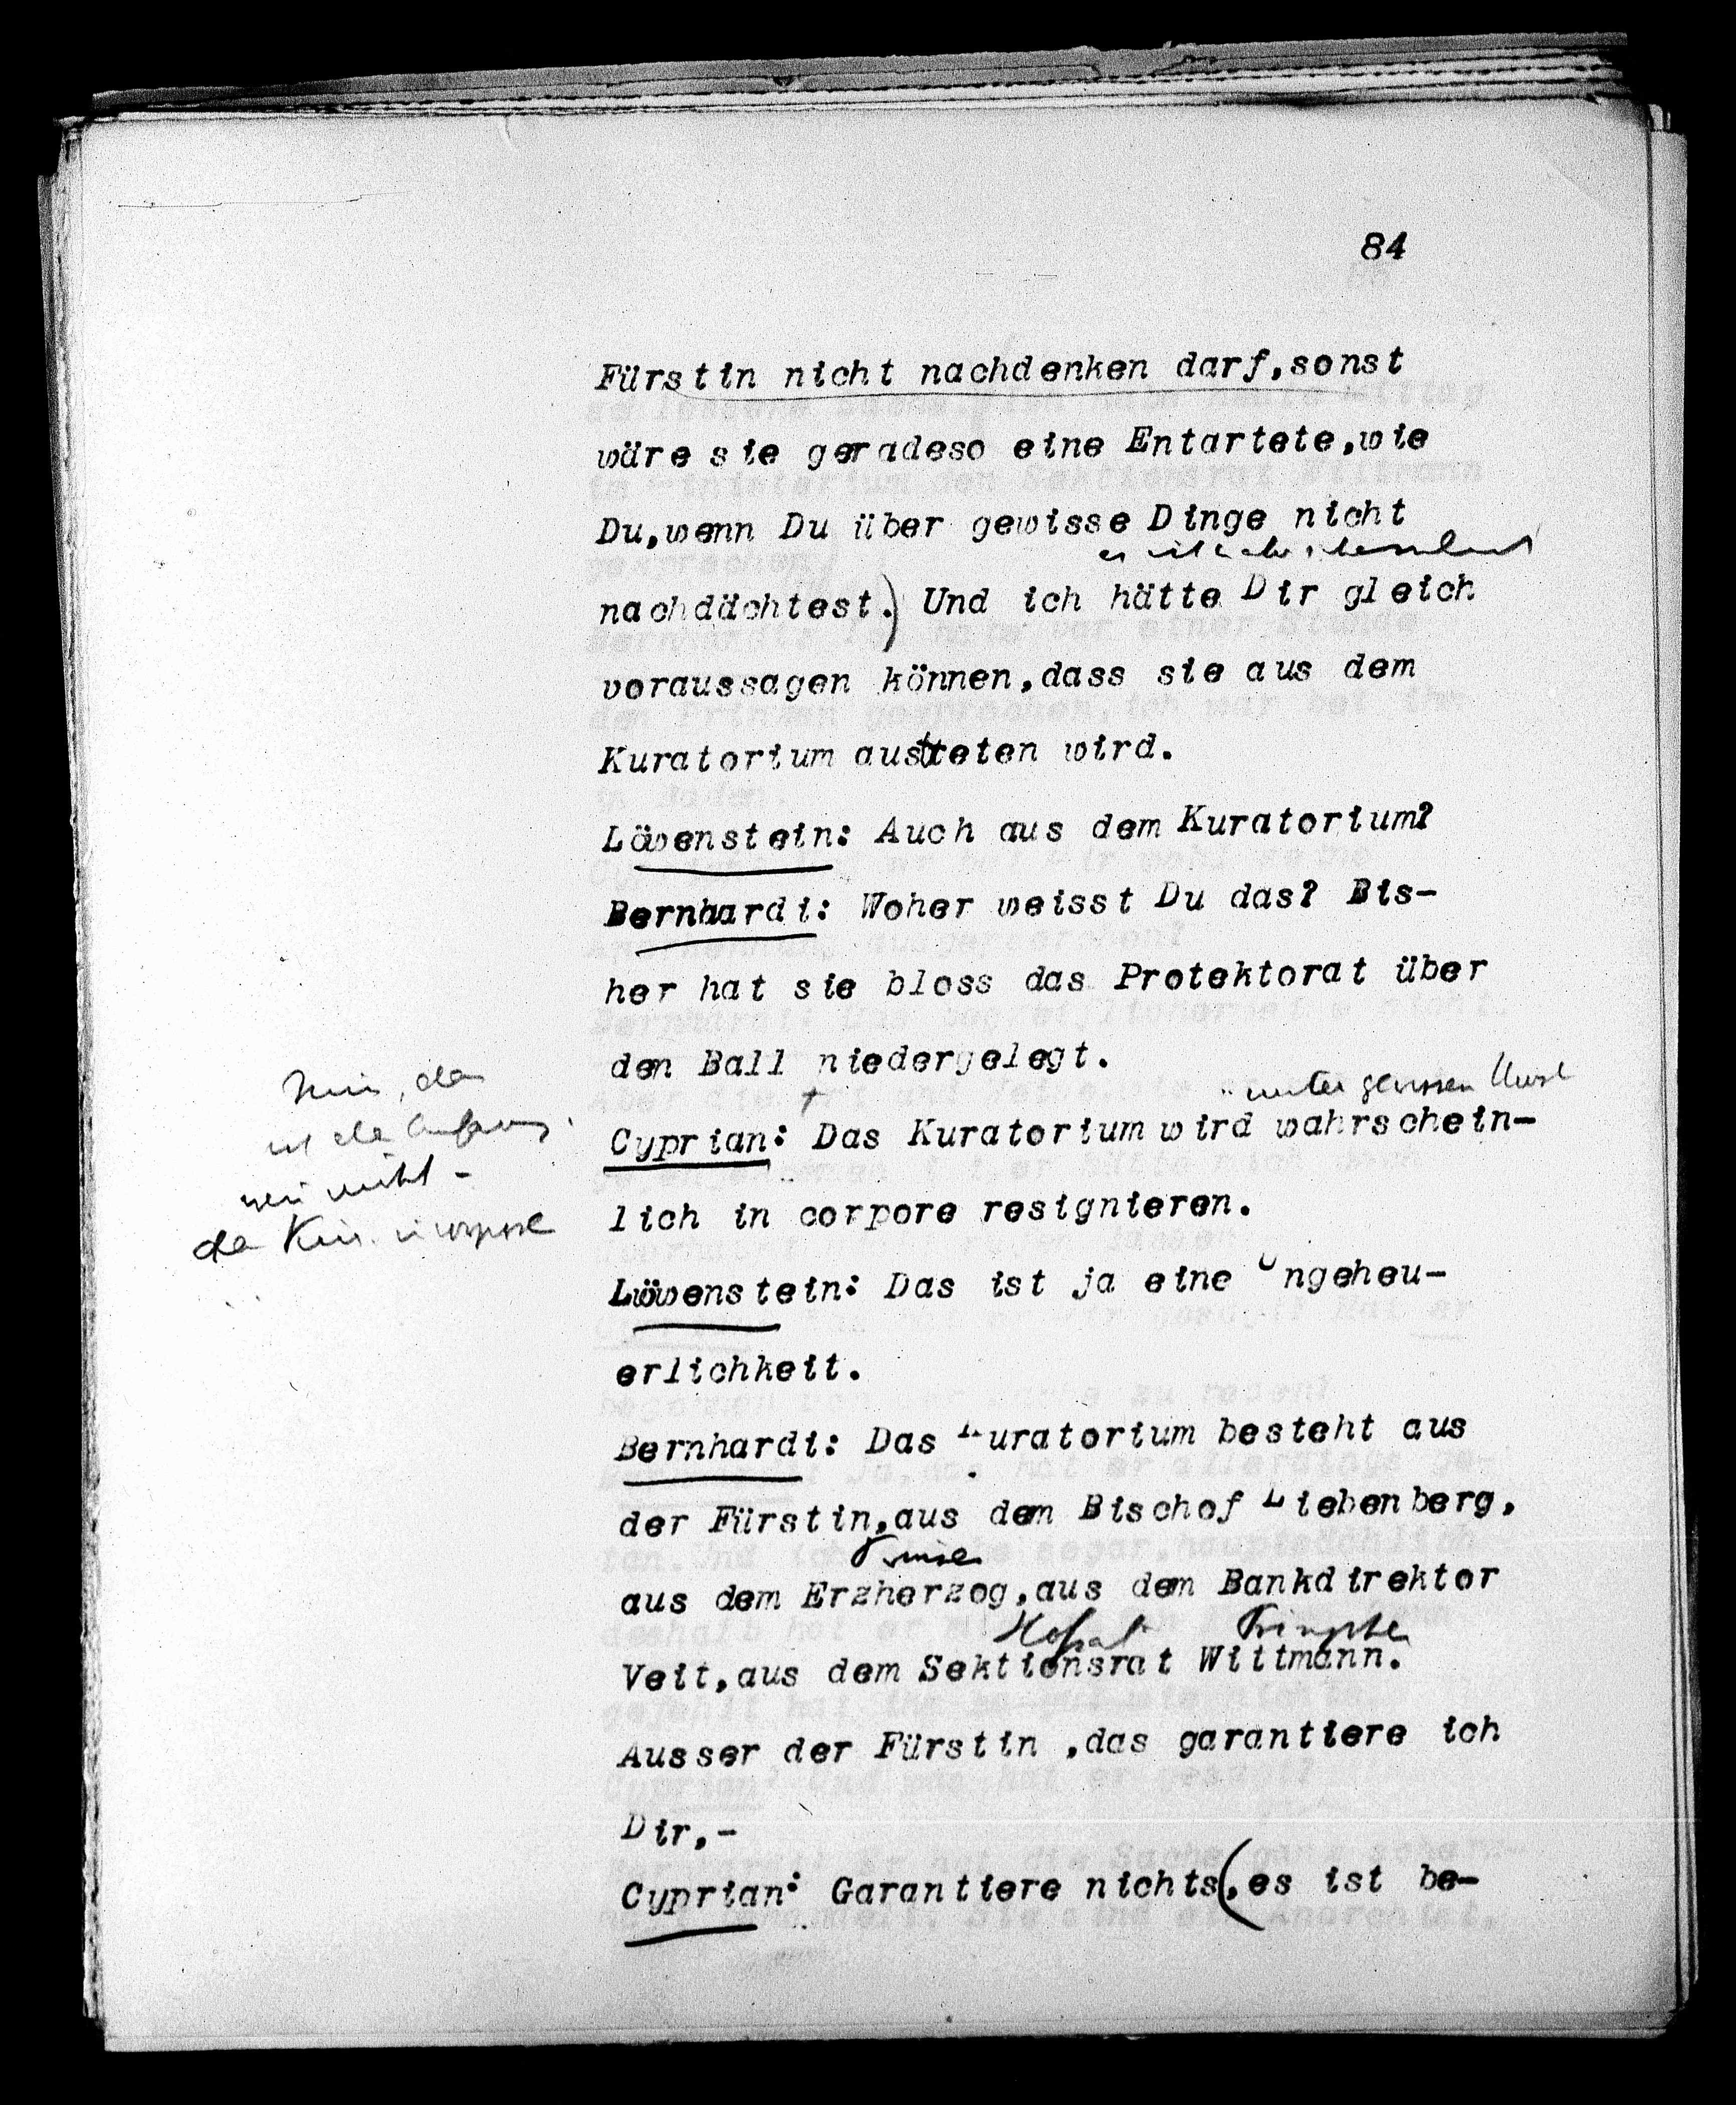 84
Fürstin nicht nachdenken darf, sonst
wäre sie geradeso eine Entartete, wie
Du, wenn Du über gewisse Dinge nicht
nachdächtest.) Und ich hätte Dir gleich
voraussagen können, dass sie aus dem
Kuratorium austreten wird.
Löwenstein: Auch aus dem Kuratorium?
Bernhardi: Woher weisst Du das? Bis-
her hat sie bloss das Protektorat über
den Ball niedergelegt.
unter gewissen Umst
Cyprian: Das Kuratorium wird wahrschein-
lich in corpore resignieren.
Löwenstein: Das ist ja eine Ungeheu-
erlichkeit.
Bernhardi: Das Kuratorium besteht aus
der Fürstin, aus dem Bischof Liebenberg,
Prinzen
aus dem Erzherzog, aus dem Bankdirektor
Hofrat
Veit, aus dem Sektionsrat Wittmann.
Ausser der Fürstin , das garantiere ich
Dir, -
Cyprian: Garantiere nichts(, es ist be-
nicht -
in corpore